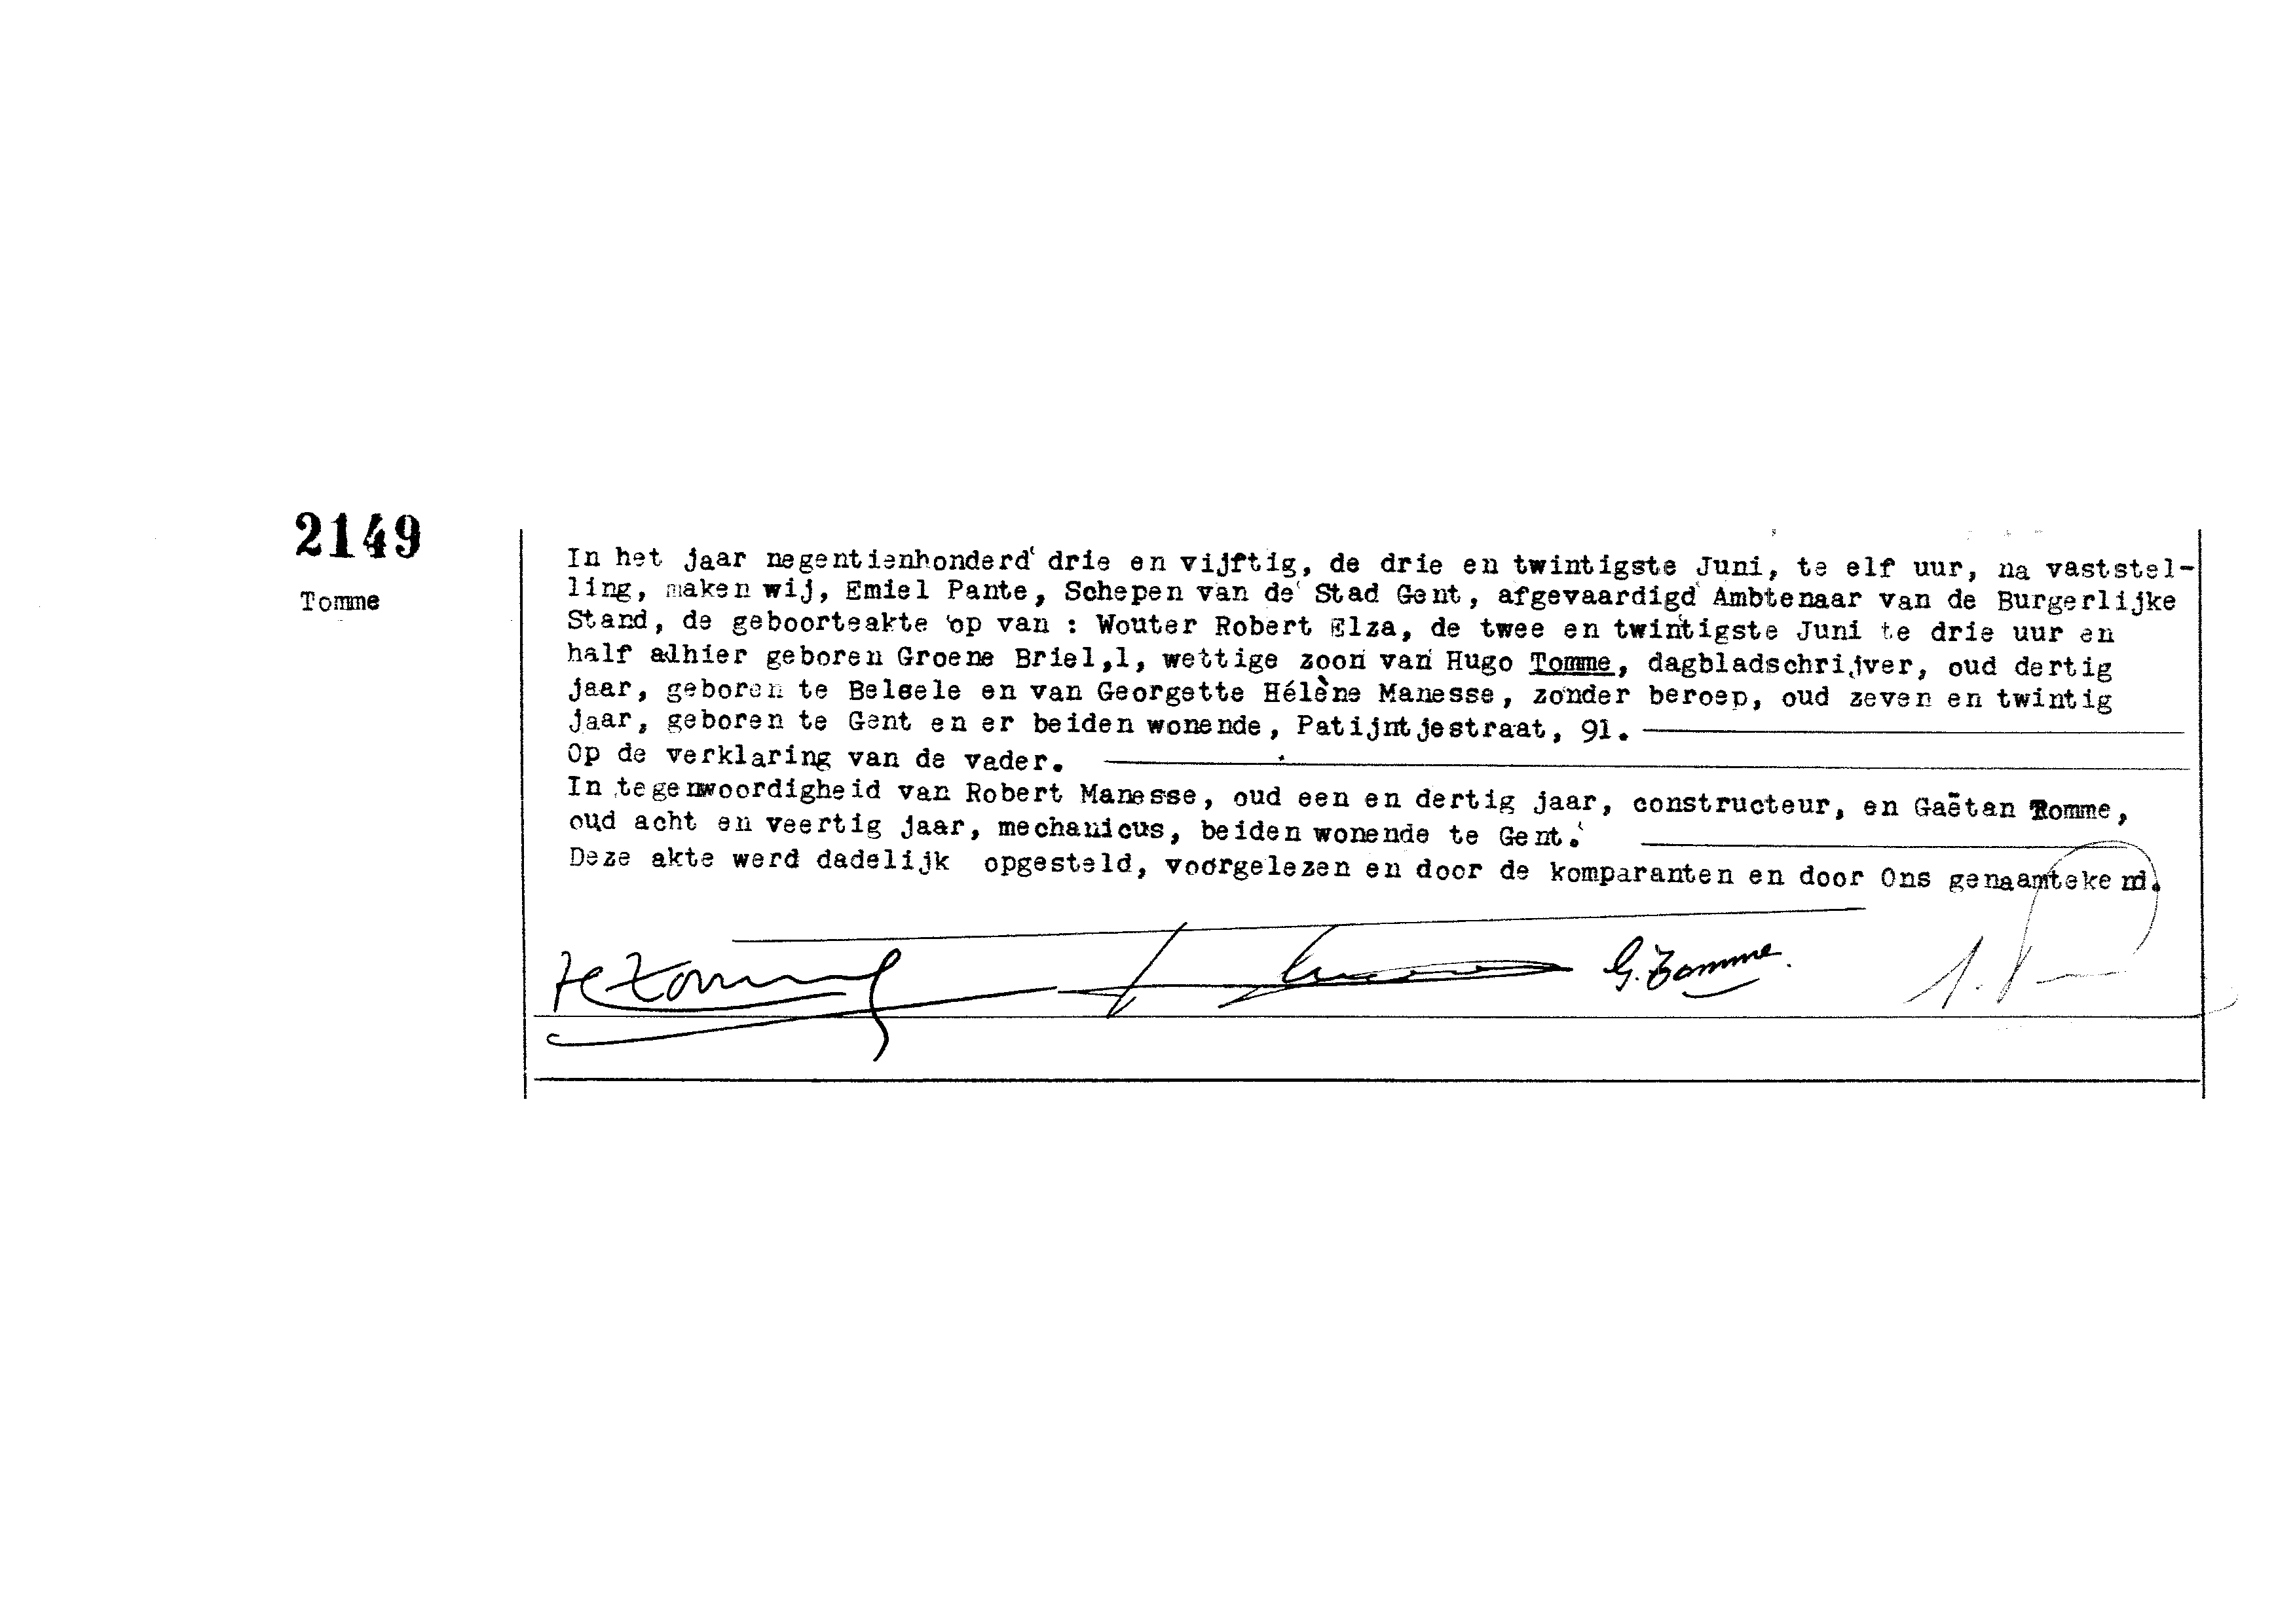 2149
Tomme
In het jaar negentienhonderd drie en vijftig, de drie en twintigste Juni, te elf uur, na vaststel-
ling, maken wij, Emiel Pante, Schepen van de Stad Gent, afgevaardigd Ambtenaar van de Burgerlijke
Stand, de geboorteakte op van : Wouter Robert Elza, de twee en twintigste Juni te drie uur en
half alhier geboren Groene Briel,1, wettige zoon van Hugo Tomme, dagbladschrijver, oud dertig
jaar, geboren te Belsele en van Georgette Hélène Manesse, zonder beroep, oud zeven en twintig
jaar, geboren te Gent en er beiden wonende, Patijntjestraat, 91.
Op de verklaring van de vader.
In tegenwoordigheid van Robert Manesse, oud een en dertig jaar, constructeur, en Gaëtan Tomme,
oud acht en veertig jaar, mechanicus, beiden wonende te Gent.
Deze akte werd dadelijk opgesteld, voorgelezen en door de komparanten en door Ons genaamtekend.
G. Tomme.